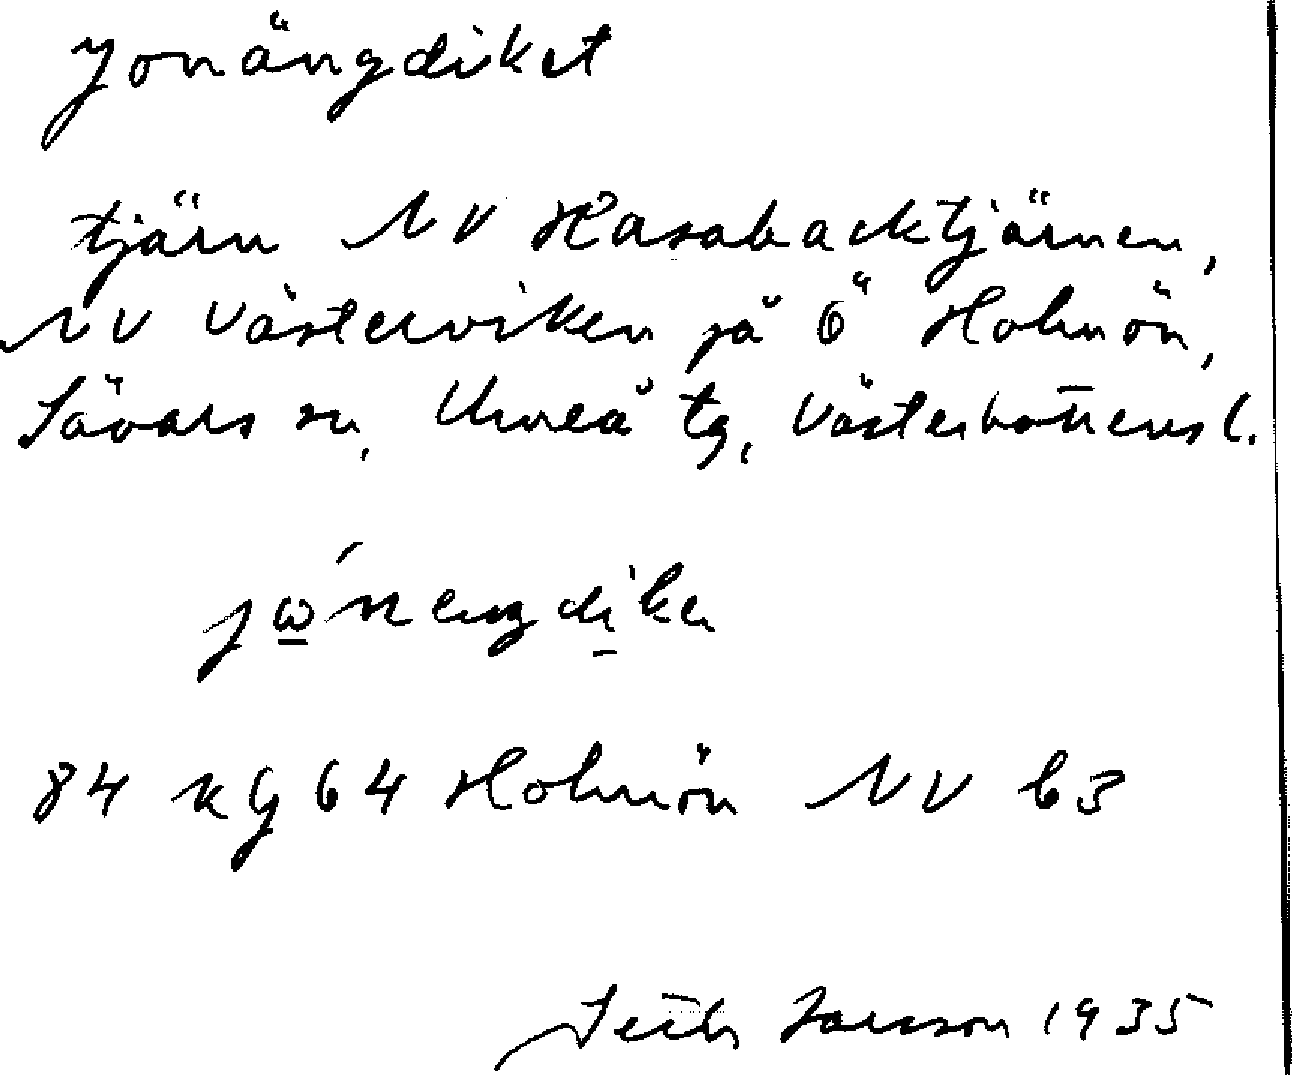 Jonängdiket
tjärn NV Hasabacktjärnen,
NV Västerviken på Ö Holmön,
Sävars sn, Umeå tg, Västerbottens l.
84 kg 64 Holmön NV b3
Larsson 1935